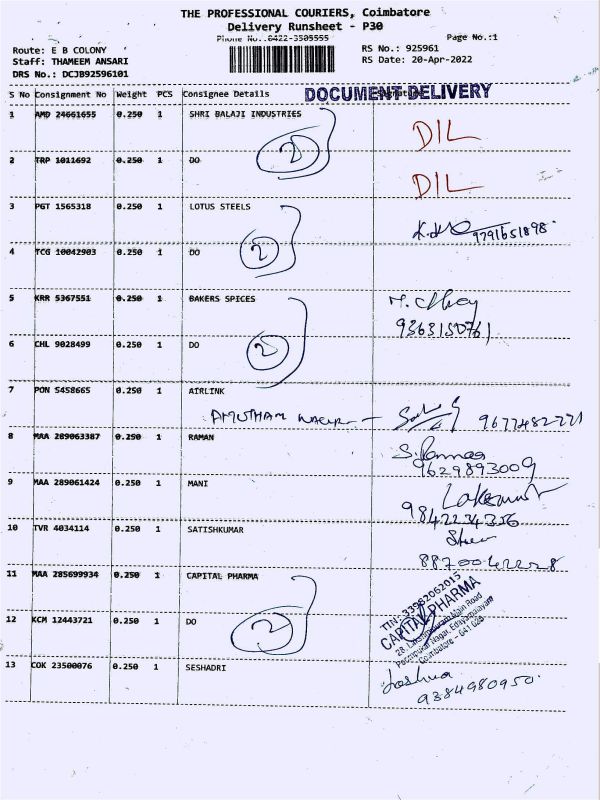 THE PROFESSIONAL COURIERS, Coimbatore
Delivery Runsheet - P30
Phone No.:0422-3505555
Page No.:1
Route: E B COLONY
RS No.: 925961
Staff: THAMEEM ANSARI
RS Date: 20-Apr-2022
DRS No.: DCJB92596101
DOCUMENT DELIVERY
S No Consignment No Weight PCS Consignee Details Signature
1 AMD 24661655 0.250 1 SHRI BALAJI INDUSTRIES
DIL
2
2 TRP 1011692 0.250 1 DO
DIL
3 PGT 1565318 0.250 1 LOTUS STEELS
9791651898
2
4 TCG 10042903 0.250 1 DO
5 KRR 5367551 0.250 1 BAKERS SPICES
9363150761
6 CHL 9028499 0.250 1 DO
2
7 PON 5458665 0.250 1 AIRLINK
AMUTHAM 9677482771
8 MAA 289063387 0.250 1 RAMAN
9629893009
9 MAA 289061424 0.250 1 MANI
9842234356
10 TVR 4034114 0.250 1 SATISHKUMAR
11 MAA 285699934 0.250 1 CAPITAL PHARMA
TIN: 33982062015
CAPITAL PHARMA
28, Main Road
Nagar, Edayarpalayam
Coimbatore - 641 025
12 KCM 12443721 0.250 1 DO
2
13 COK 23500076 0.250 1 SESHADRI
Joshua
9384980950